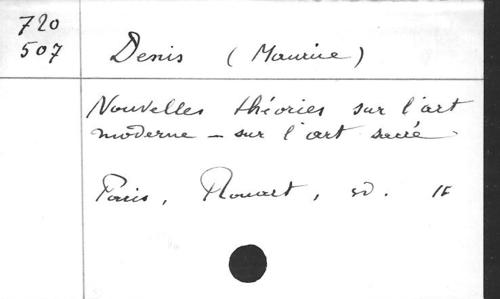 720
507
Denis (Maurice)
Nouvelles théories sur l'art
moderne - sur l'art sacré.
Paris, Rouart, sd.